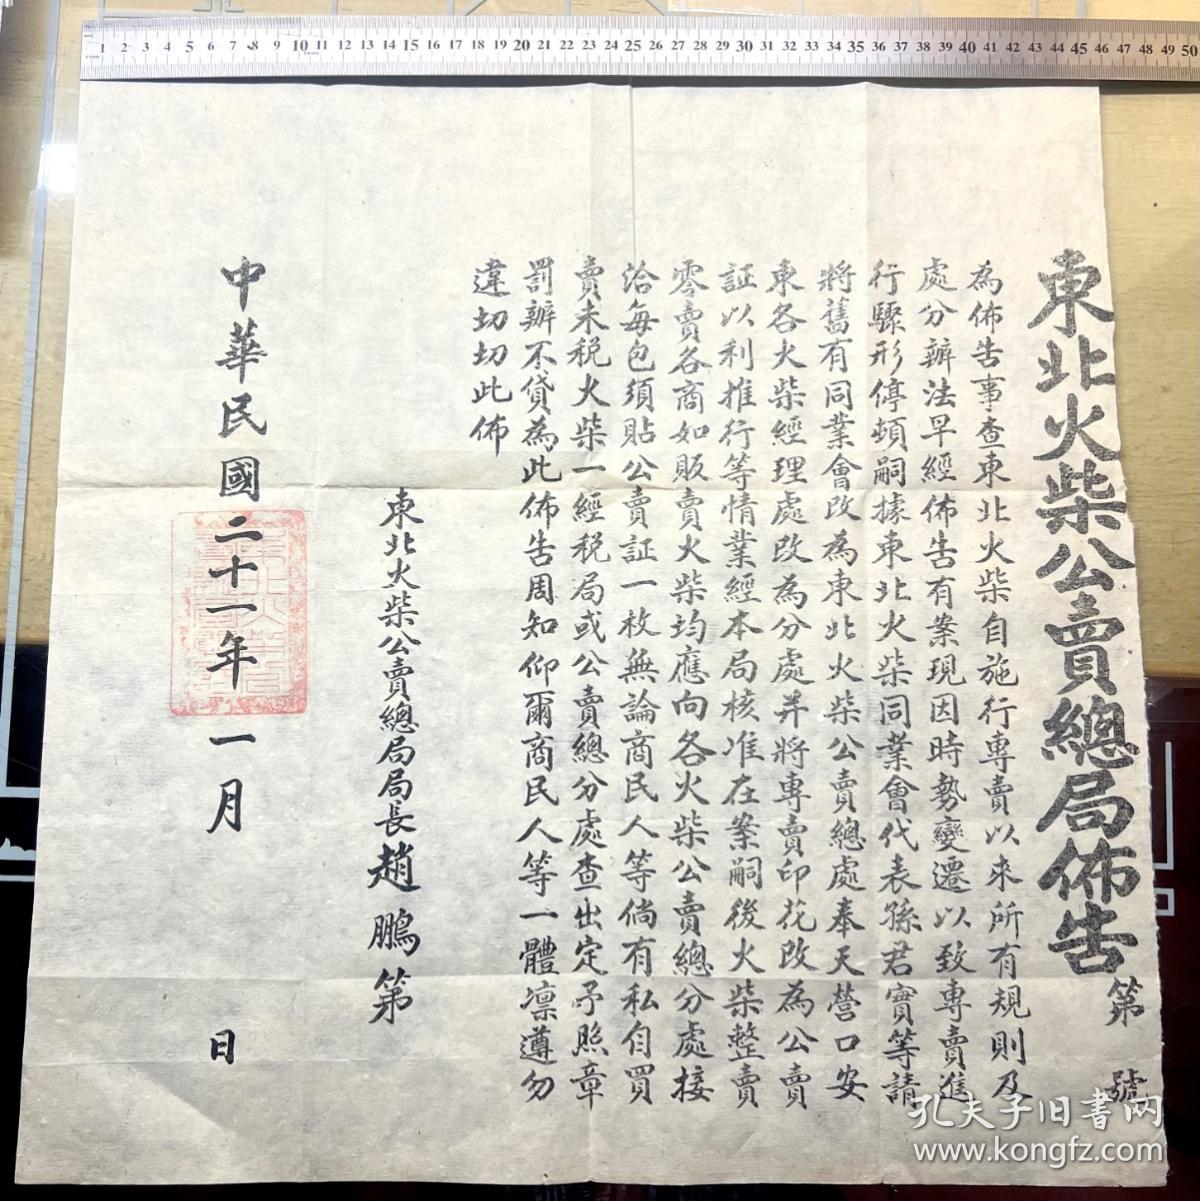 東北火柴公賣總局佈告
第 號
為佈告事查東北火柴自施行專賣以來所有規則及
處分辦法早經佈告有案現因時勢變遷以致專賣進
行驟形停頓嗣據東北火柴同業會代表孫君實等請
將舊有同業會改為東北火柴公賣總處奉天營口安
東各火柴經理處改為分處并將專賣印花改為公賣
証以利推行等情業經本局核准在案嗣後火柴整賣
零賣各商如販賣火柴均應向各火柴公賣總分處接
洽每包須貼公賣証一枚無論商民人等倘有私自買
賣未稅火柴一經稅局或公賣總分處查出定予照章
罰辦不貸為此佈告周知仰爾商民人等一體凛遵勿
違切切此佈
東北火柴公賣總局局長趙鵬第
中華民國二十一年一月 日
1 2 3 4 5 6 7 8 9 10 11 12 13 14 15 16 17 18 19 20 21 22 23 24 25 26 27 28 29 30 31 32 33 34 35 36 37 38 39 40 41 42 43 44 45 46 47 48 49 50
孔夫子旧书网
www.kongfz.com